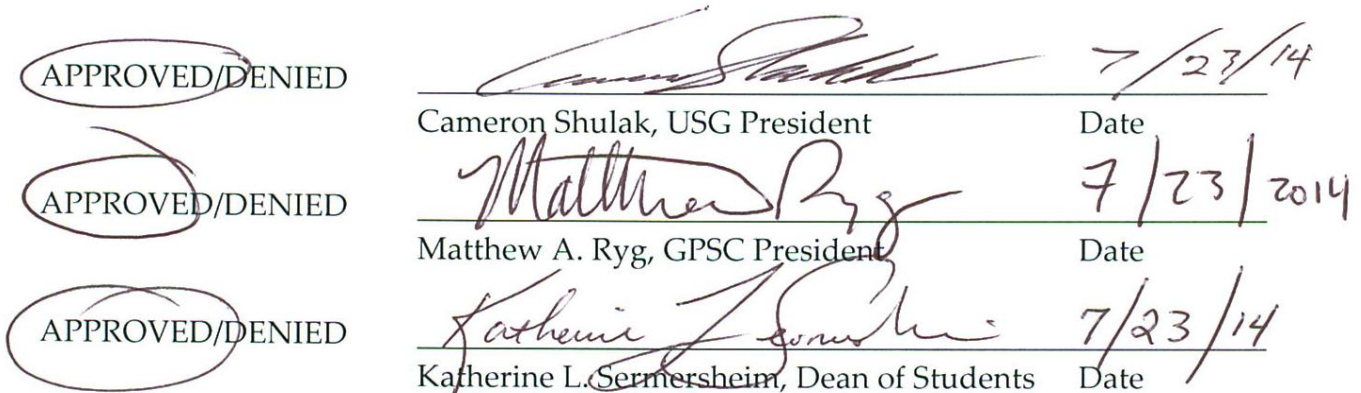 APPROVED/DENIED Cameron Shulak 7/23/14
Cameron Shulak, USG President Date
APPROVED/DENIED Matthew Ryg 7/23/2014
Matthew A. Ryg, GPSC President Date
APPROVED/DENIED Katherine L Sermersheim 7/23/14
Katherine L. Sermersheim, Dean of Students Date